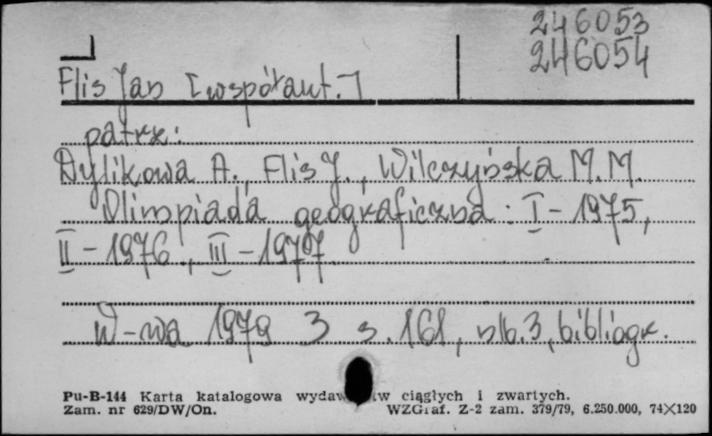 246053
246054
Flis Jan [współaut.]
patrz:
Dylikowa A., Flis J., Wilczyńska M.M.
Olimpiada geograficzna: I - 1975,
II - 1976, III - 1977.
W-wa 1979 3 s. 161, nlb. 3, bibliogr.
Pu-B-144 Karta katalogowa ciągłych i zwartych.
Zam. nr 629/DW/On. WZGraf. Z-2 zam. 379/79, 6.250.000, 74×120